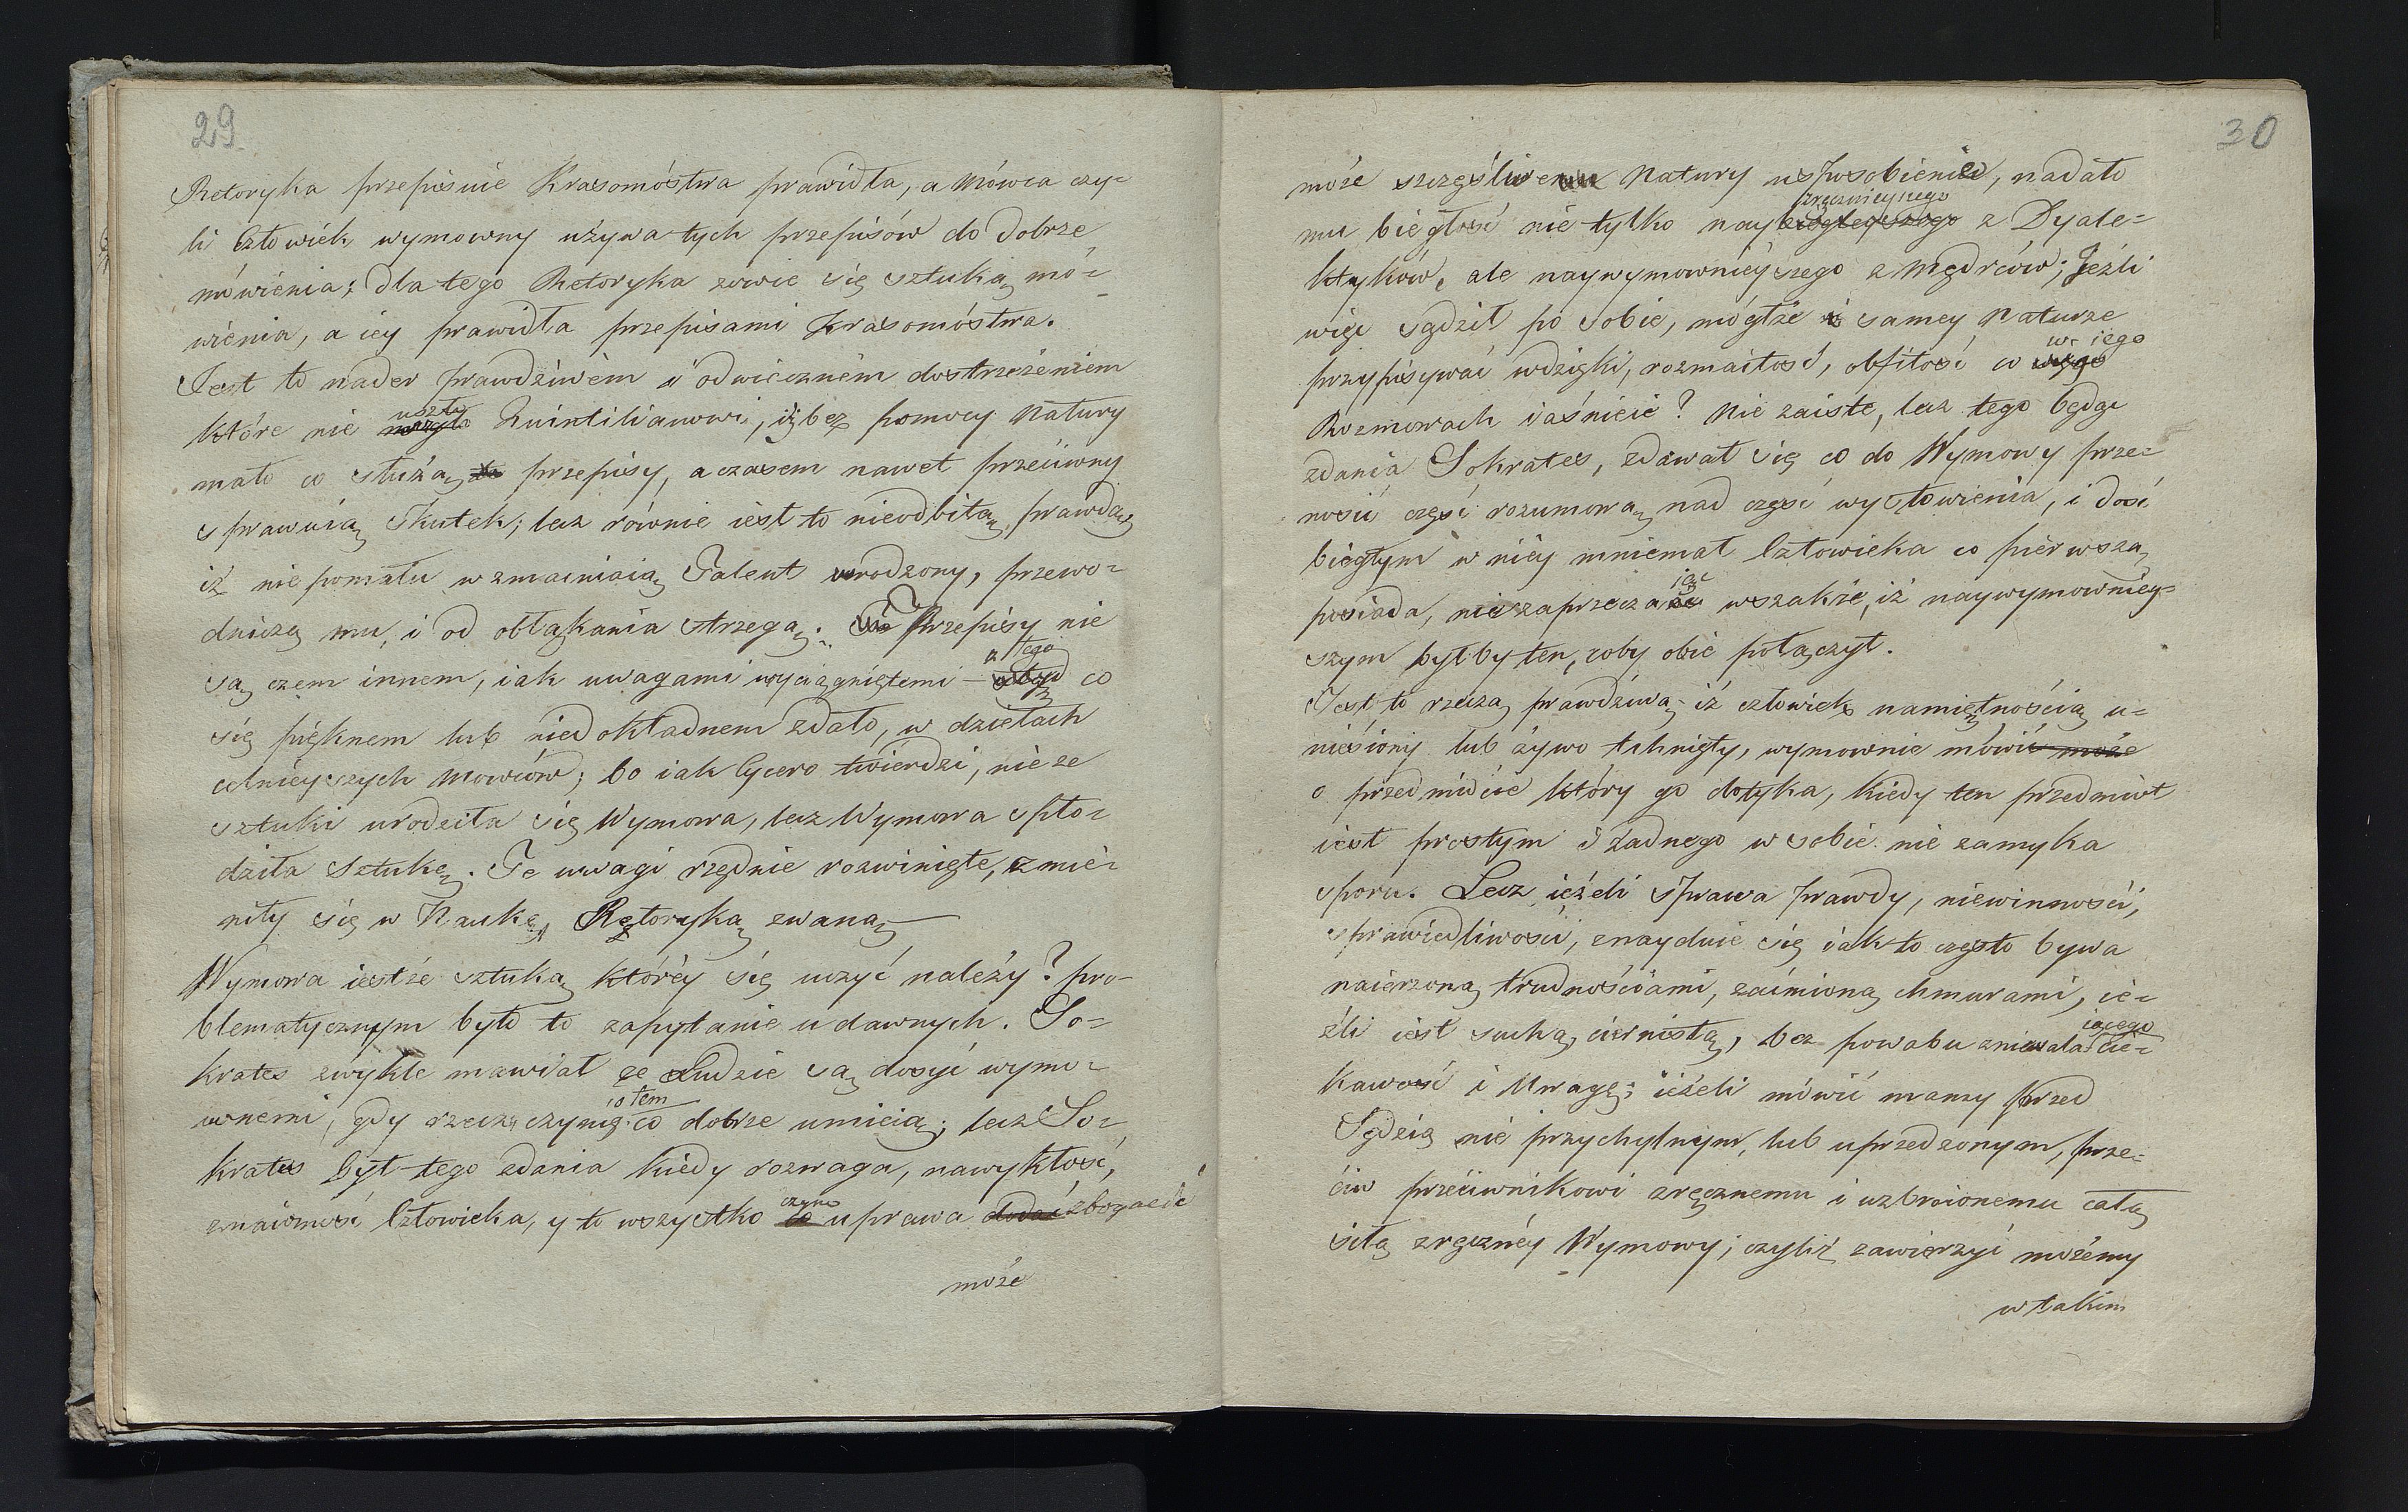 29
Retoryka przepisuie Krasomóstwa prawidła, a Mówca czy=
li Człowiek wymowny używa tych przepisów do dobrze
mówienia; dla tego Retoryka zowie się sztuką mó=
wienia, a iey prawidła przepisami Krasomóstwa.
Jest to nader prawdziwém i odwiecznem dostrzeżeniem
uszło
które nie Quintilianowi, iż bez pomocy Natury
mało co służą przepisy, a czasem nawet przeciwny
sprawuią skutek; lecz równie iest to nieodbitą prawdą
iż nie pomału wzmacniaią Talent wrodzony, przewo=
dniczą mu, i od obłąkania strzegą. Przepisy nie
z tego
są czem innem, iak uwagami wyciągniętemi – co
się pięknem lub niedokładnem zdało, w dziełach
celnieyszych Mowców; bo iak Cycero twierdzi, nie ze
sztuki urodziła się Wymowa, lecz Wymowa spło=
dziła Sztukę. Te uwagi rzędnie rozwinięte, zmie=
niły się w Naukę, Retoryką zwaną
Wymowa iestże sztuką któréy się uczyć należy? pro=
blematycznym było to zapytanie u dawnych. So=
krates zwykle mawiał że Ludzie są dosyć wymo=
o tem
wnemi, gdy rzecz czynią co dobrze umieią; lecz So=
krates był tego zdania kiedy rozwaga, nawykłość,
czyno
znaiomość Człowieka, y to wszystko co uprawa dodać zbogacić
może
30
może szczęśliwe Natury usposobienie, nadało
zręcznieyszego
mu biegłość nie tylko naybieglejszego z Dyale=
ktyków, ale naywymownieyszego z Mędrców; Jeżli
więc sądził po sobie, mógłże samey Naturze
w iego
przypisywać wdzięki, rozmaitość, obfitość co
Rozmowach iaśnieie? Nie zaiste, lecz tego będąc
zdania Sokrates, zdawał się co do Wymowy prze=
nosić część rozumową nad część wysłowienia, i dość
biegłym w niéy mniemał Człowieka co pierwszą
iąc
posiada, nie zaprzecza wszakże, iż naywymowniey=
szym byłby ten, coby obie połączył.
Jest to rzeczą prawdziwą iż człowiek namiętnością u=
niesiony lub żywo tchnięty, wymownie mówić może
o przedmiocie który go dotyka, kiedy ten przedmiot
iest prostym i żadnego w sobie nie zamyka
sporu. Lecz ieżeli sprawa prawdy, niewinności,
sprawiedliwości, znayduie się iak to często bywa
naieżoną trudnościami, zaćmioną chmurami, ie=
iącego
żli iest suchą, ciernistą, bez powabu zniewala cie=
kawość i Uwagę; ieżeli mówić mamy przed
Sędzią nie przychylnym, lub uprzedzonym, prze=
ciw przeciwnikowi zręcznemu i uzbroionemu całą
siłą zręcznéy Wymowy; czyliż zawierzyć możemy
w takim